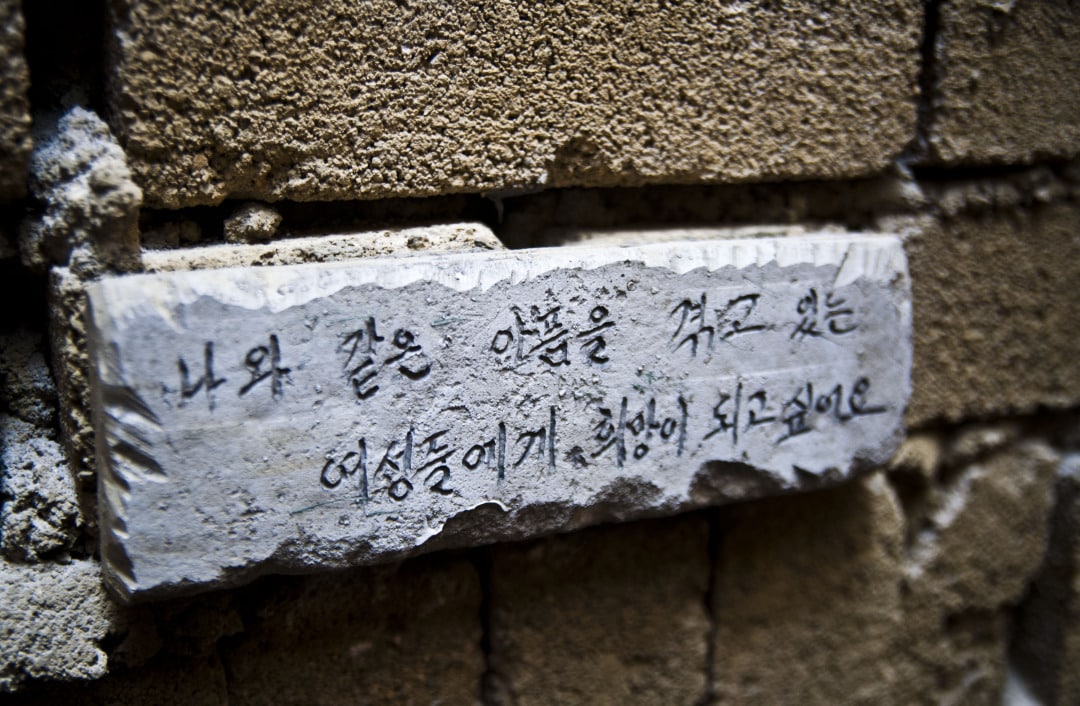 나와 같은 아픔을 겪고 있는
여성들에게 희망이 되고싶어요